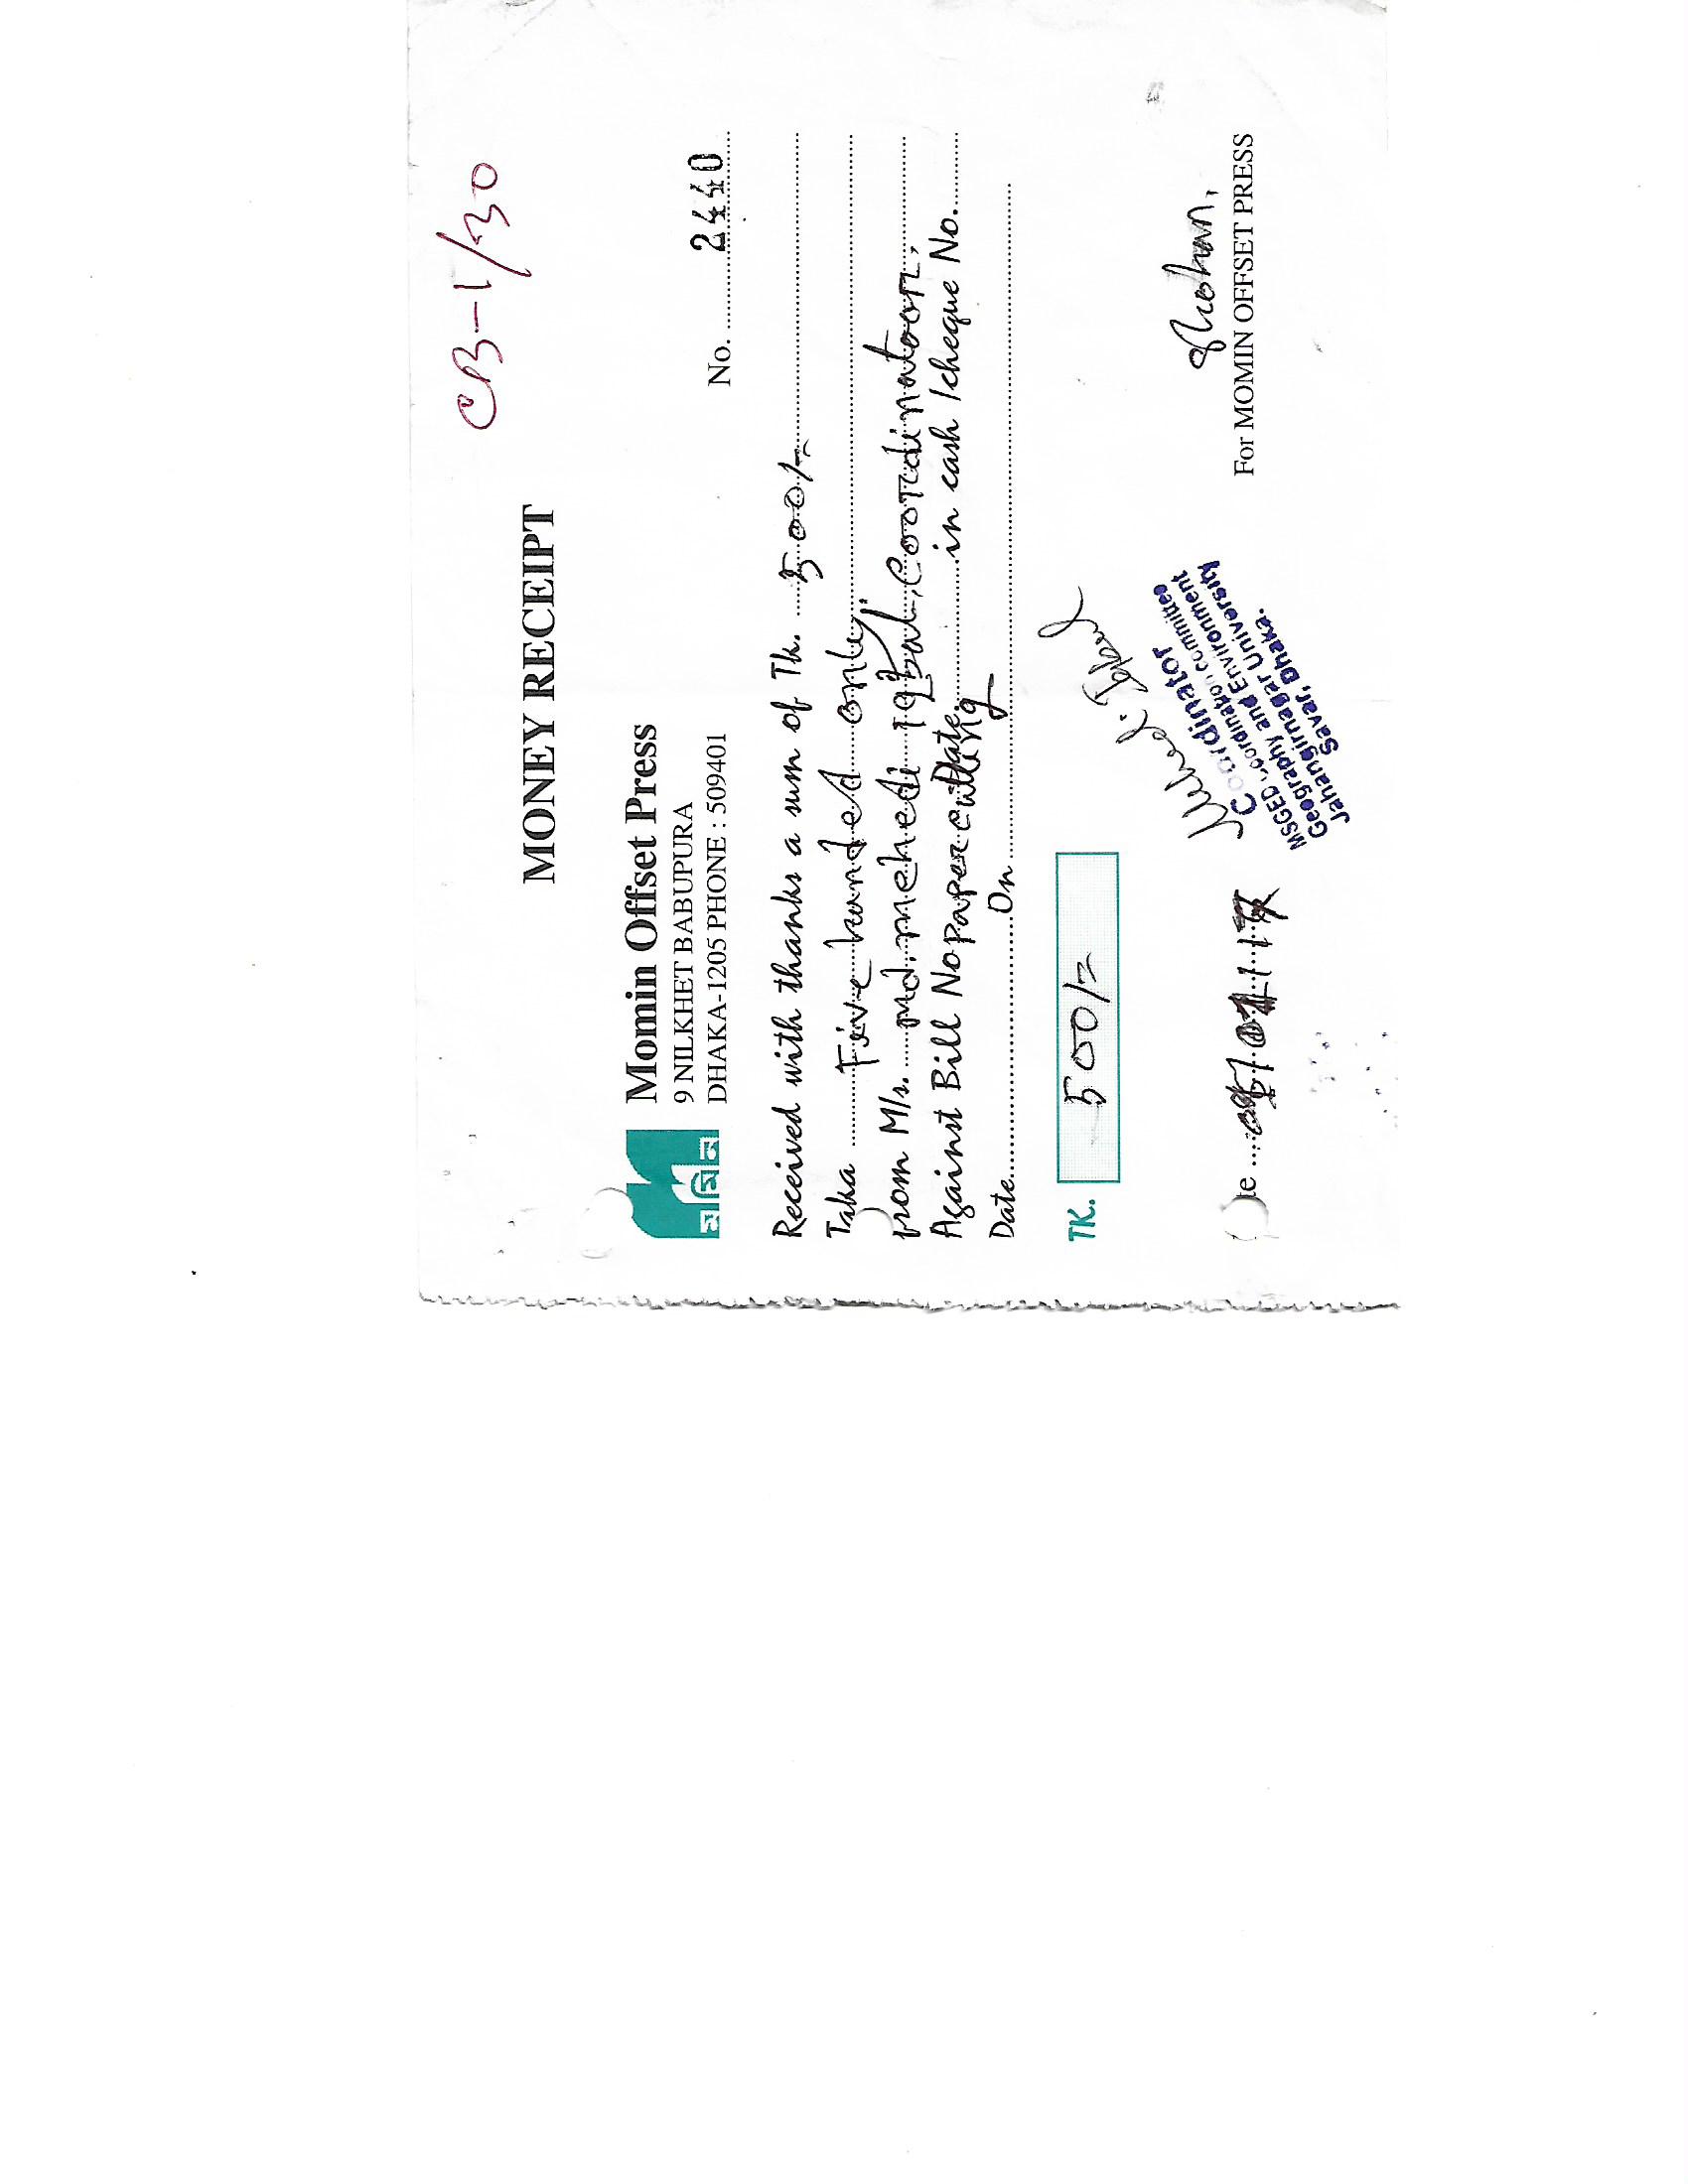 CB-1/30
MONEY RECEIPT
মমিন
Momin Offset Press
9 NILKHET BABUPURA
DHAKA-1205 PHONE : 509401
No. 2440
Received with thanks a sum of Tk. 500/=
Taka Five hundred only.
from M/s. md. mehedi iqbal, Coordinator,
Against Bill No Paper cutting Date in cash / cheque No.
Date On
TK. 500/=
Mehedi Iqbal
Coordinator
MSGED Coordination committee
Geography and Environment
Jahangirnagar University
Savar, Dhaka.
te
For MOMIN OFFSET PRESS